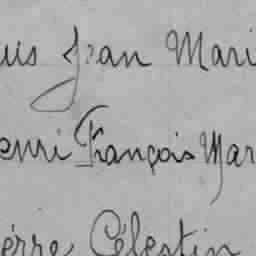 us Jean Mari
enri François Mar
ierre Célestin